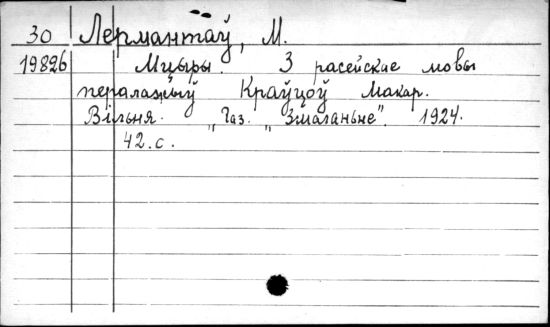 30 Лермантаў, М.
19826 Мцыры. З расейскае мовы
пералажыў Краўцоў Макар.
Вільня. „Газ. „Змаганьне". 1924.
42.с.